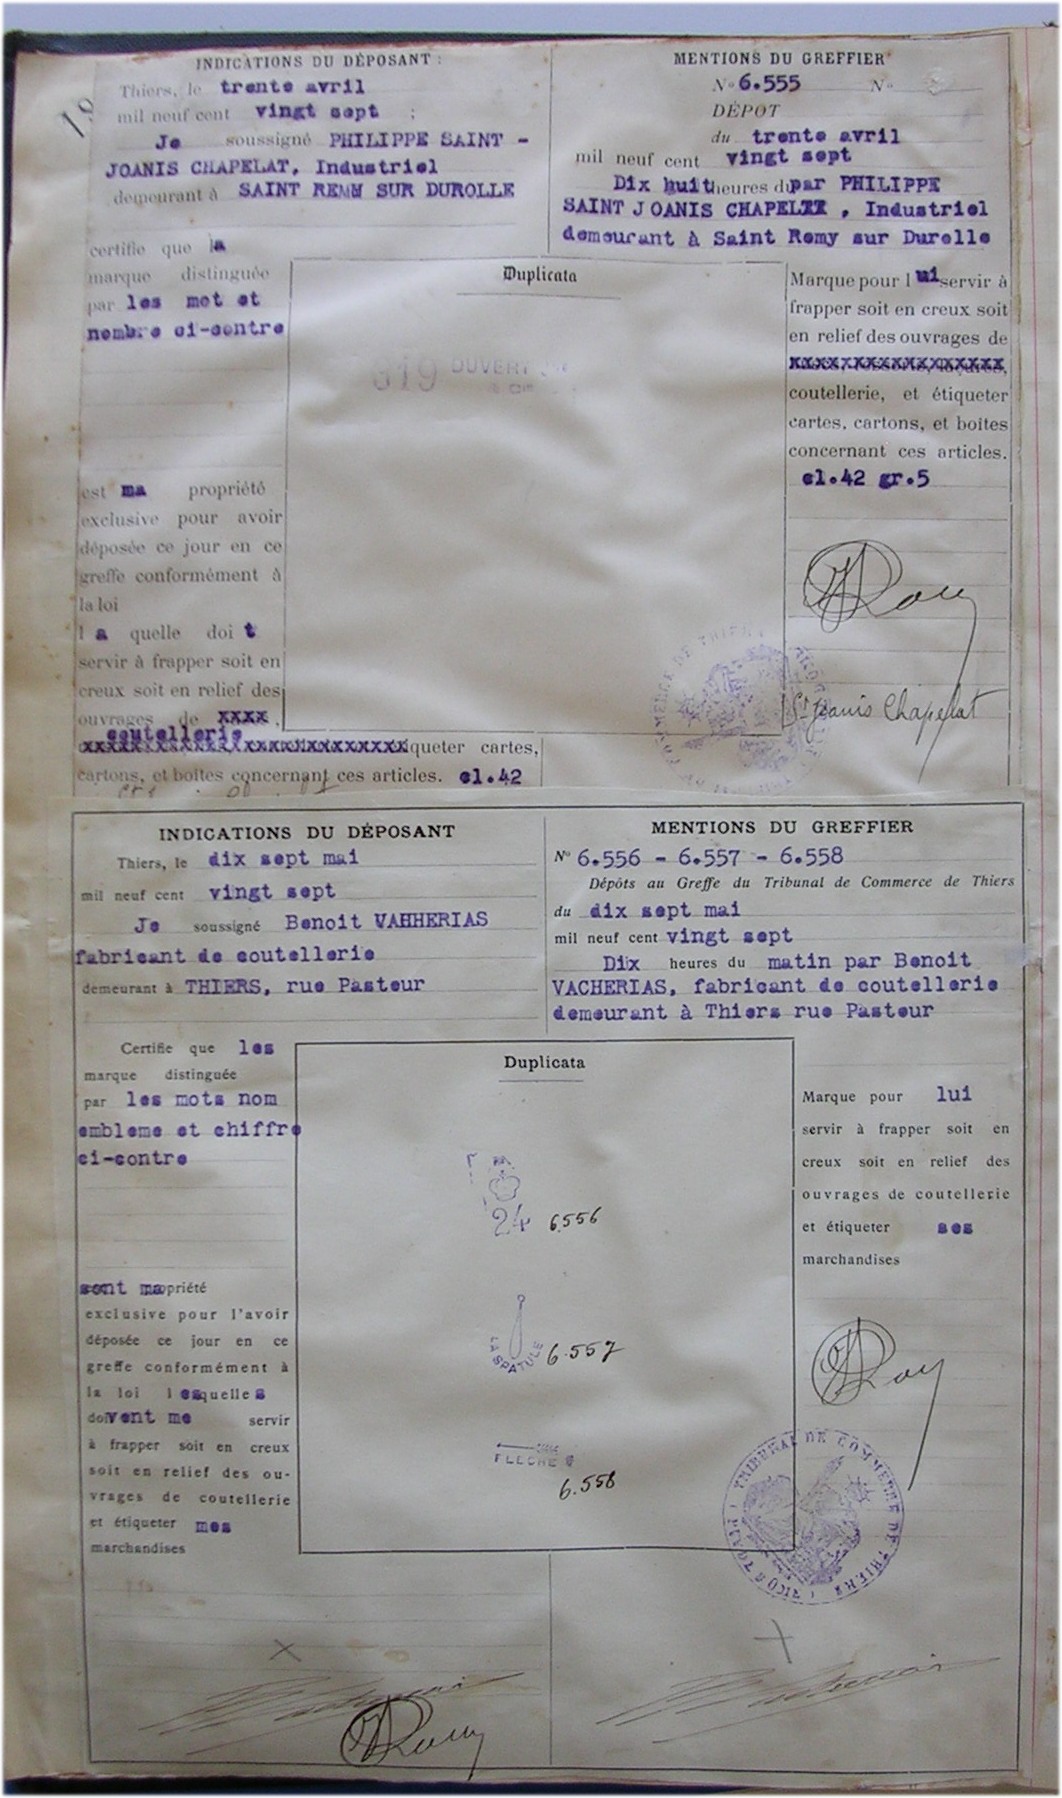 INDICATIONS DU DÉPOSANT :
Thiers, le trente avril
mil neuf cent vingt sept ;
Je soussigné PHILIPPE SAINT -
JOANIS CHAPELAT, Industriel
demeurant à SAINT REMY SUR DUROLLE
certifie que la
marque distinguée
par les mot et
nombre ci-contre
est ma propriété
exclusive pour avoir
déposée ce jour en ce
greffe conformément à
la loi
l a quelle doi t
servir à frapper soit en
creux soit en relief des
ouvrages de xxxx .
coutellerie
xxxxxxxxxxxxxxxxxxxxxxxxxxiqueter cartes,
cartons, et boîtes concernant ces articles. cl.42
Duplicata
619 OUVERT
& Cie
MENTIONS DU GREFFIER
No 6.555 No
DÉPOT
du trente avril
mil neuf cent vingt sept
Dix huit heures du par PHILIPPE
SAINT JOANIS CHAPELXX , Industriel
demeurant à Saint Remy sur Durolle
Marque pour l ui servir à
frapper soit en creux soit
en relief des ouvrages de
xxxxxxxxxxxxxxxxxx
coutellerie, et étiqueter
cartes, cartons, et boîtes
concernant ces articles.
cl.42 gr.5
St Joanis Chapelat
INDICATIONS DU DÉPOSANT
Thiers, le dix sept mai
mil neuf cent vingt sept
Je soussigné Benoit VAHHERIAS
fabricant de coutellerie
demeurant à THIERS, rue Pasteur
Certifie que les
marque distinguée
par les mots nom
embleme et chiffre
ci-contre
sont ma opriété
exclusive pour l'avoir
déposée ce jour en ce
greffe conformément à
la loi l esquelles
doivent me servir
à frapper soit en creux
soit en relief des ou-
vrages de coutellerie
et étiqueter mes
marchandises
Duplicata
24 6556
LA SPATULE 6.557
FLECHE
6.558
MENTIONS DU GREFFIER
No 6.556 - 6.557 - 6.558
Dépôts au Greffe du Tribunal de Commerce de Thiers
du dix sept mai
mil neuf cent vingt sept
Dix heures du matin par Benoit
VACHERIAS, fabricant de coutellerie
demeurant à Thiers rue Pasteur
Marque pour lui
servir à frapper soit en
creux soit en relief des
ouvrages de coutellerie
et étiqueter ses
marchandises
TRIBUNAL DE COMMERCE DE THIERS